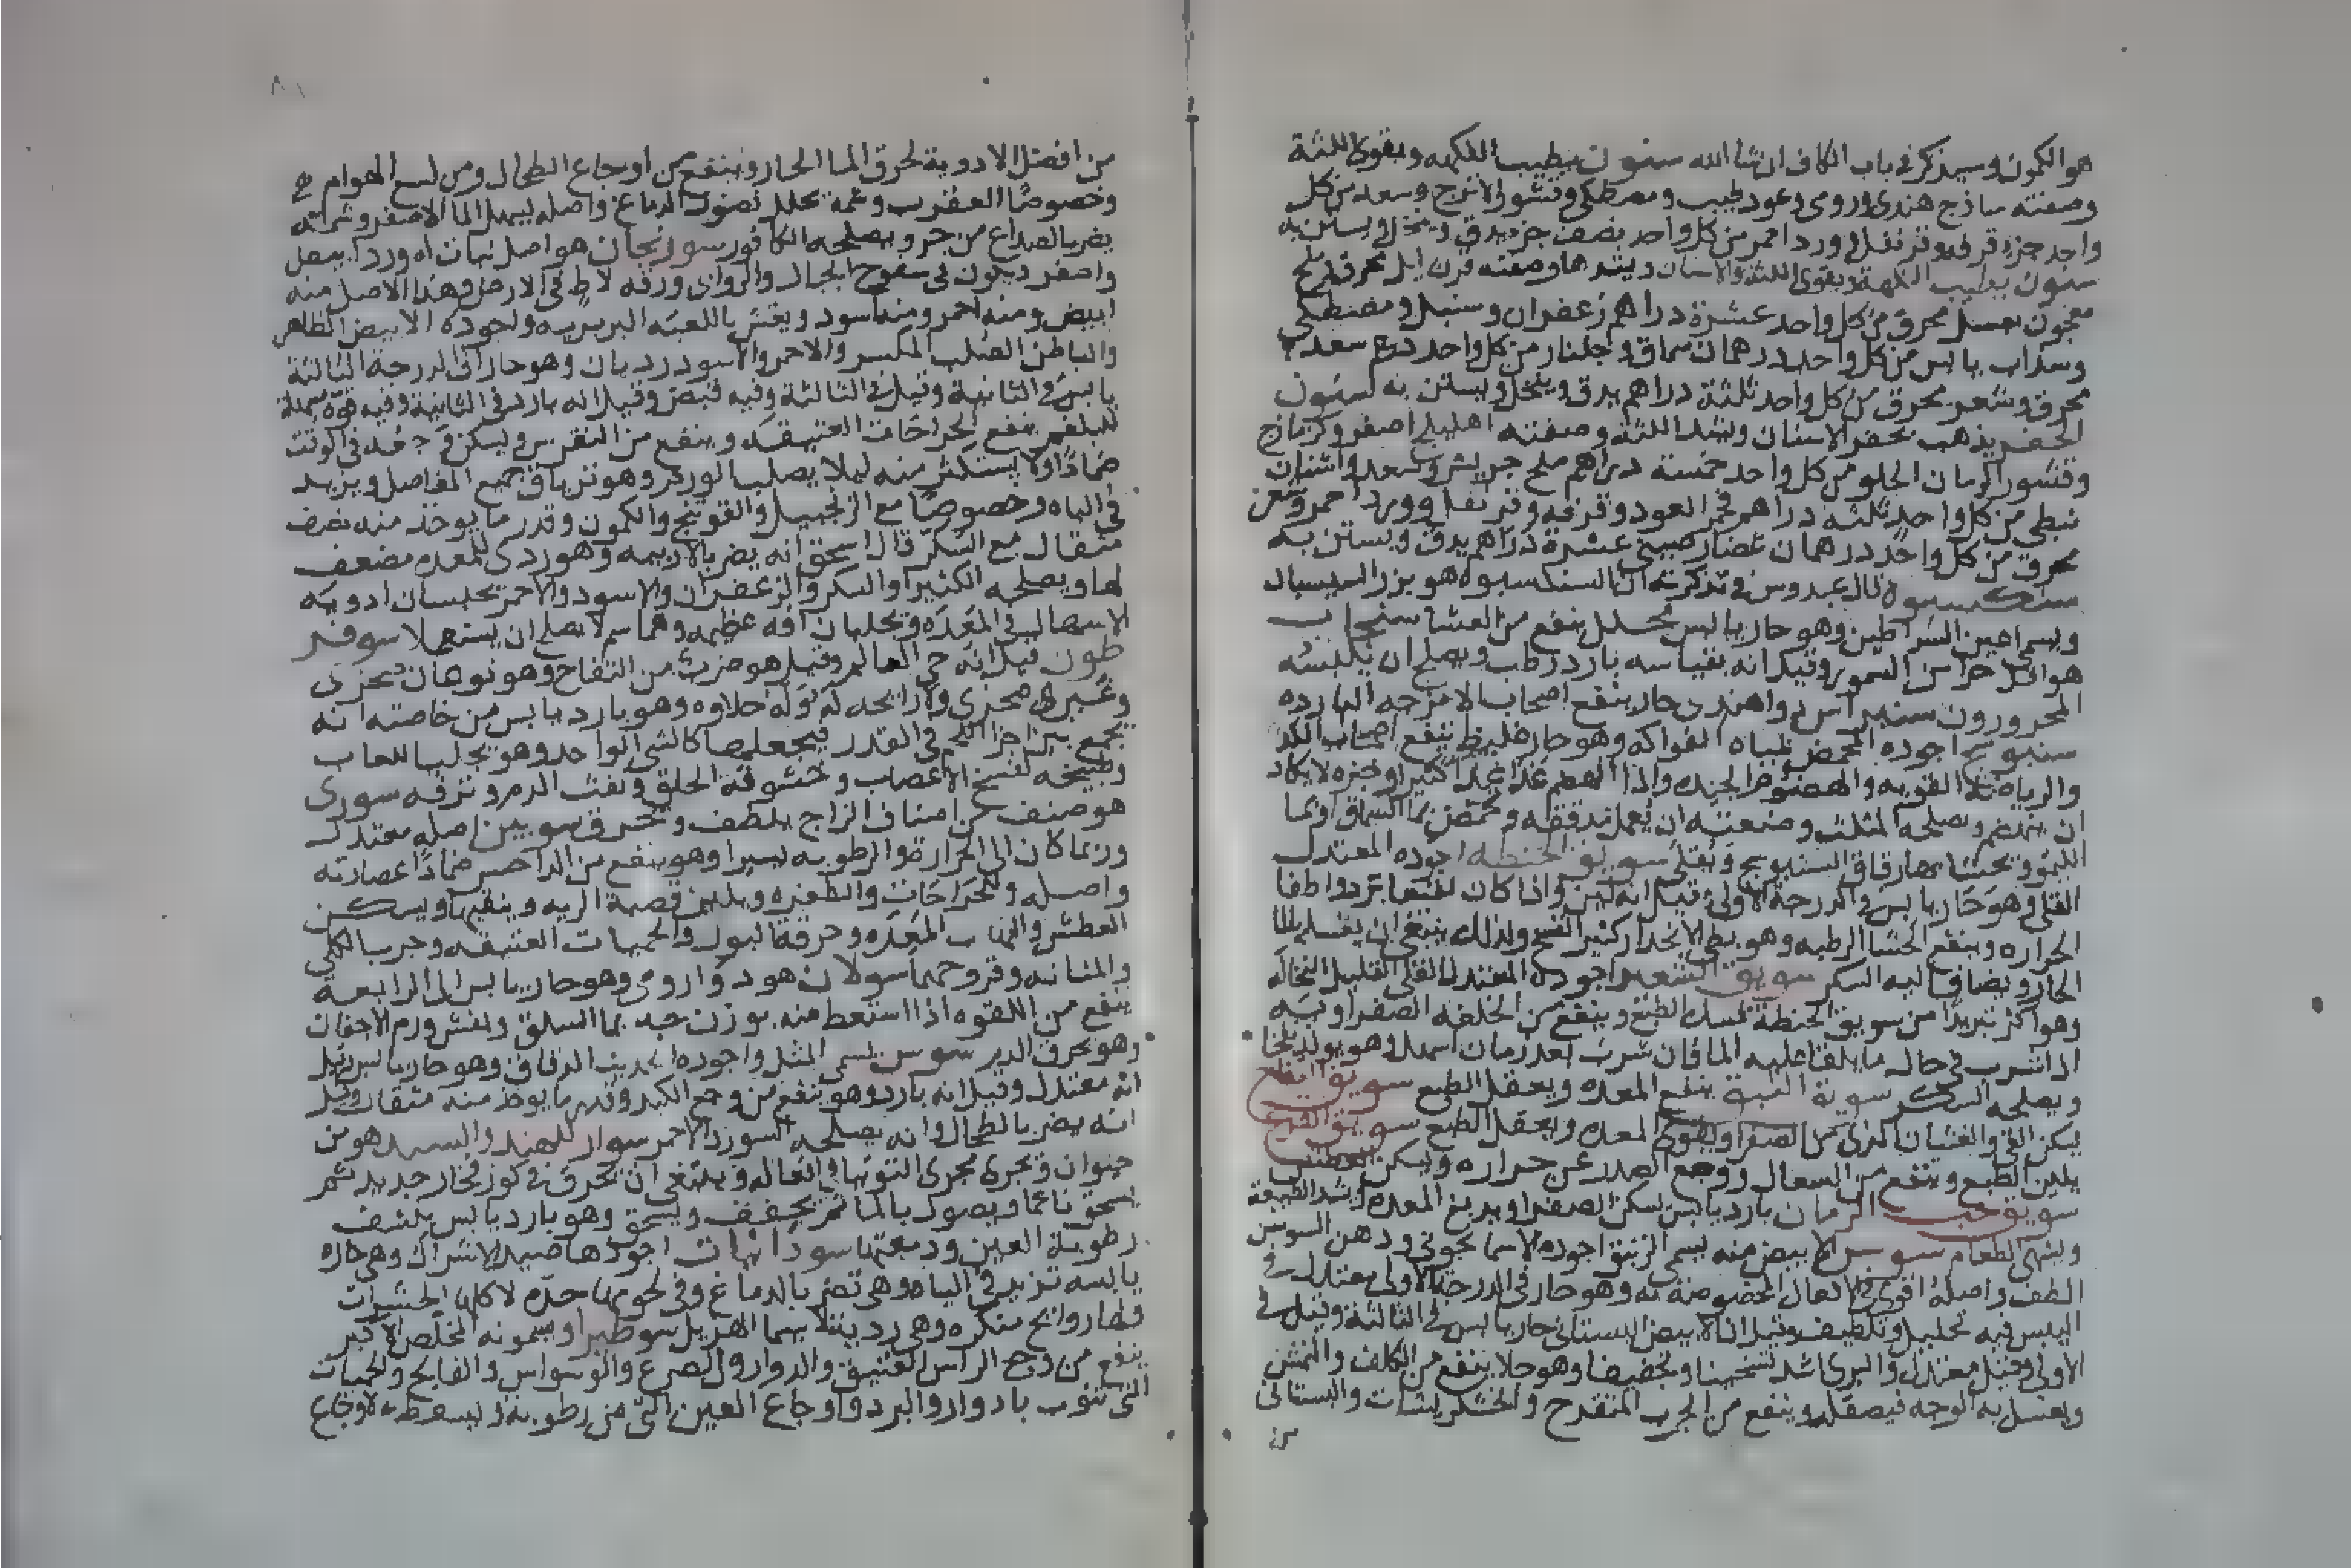 هو الكمون وسيذكر في باب الكاف ان شا الله سنون يطيب النكهه ويقوي اللثة
وصفته ساذج هندي ورومي وعود طيب ومصطكي وقشور الاترج وسعد من كل
واحد جزء قرفه وقرنفل وورد احمر من كل واحد نصف جزء يدق وينخل ويستن به
سنون يطيب النكهة ويقوي اللثة والاسنان ويشدها وصفته قرن ايل محرق ملح
معجون بعسل محرق من كل واحد عشرة دراهم زعفران وسنبل ومصطكي
وسداب يابس من كل واحد درهمان سماق وجلنار من كل واحد درهم سعد
محرق وشعير محرق من كل واحد ثلثة دراهم يدق وينخل ويستن به لسنون
الحفر يذهب بحفر الاسنان ويشد اللثة وصفته اهليلج اصفر وكزمازج
وقشور الرمان الحلو من كل واحد خمسة دراهم ملح جريش وسعد واشنان
نبطي من كل واحد ثلثه دراهم فحم العود وقرفه وقرنفل وورد احمر
محرق من كل واحد درهمان غضار صيني عشرة دراهم يدق ويستن به
سنكسبوه قال عبدوس في تذكرته ان السنكسبوه هو بزر
ويسمى عين السراطين وهو حار يابس محلل ينفع من العشا سنجاب
هو اقل حرا من السمور وقيل انه بقياسه بارد رطب ويصلح ان يلبسه
المحرورون هندي حار ينفع اصحاب الامزجه البارده
سنبوسج اجوده المحمض بمياه الفواكه وهو حار غليظ ينفع اصحاب الكد
والرياضة القويه والهضوم الجيده واذا انهضم غذا غذا كثيرا وخبزه لا يكاد
ان ينهضم ويصلحه المثلث وصنعته ان يعمل مدققه ومحمض بما السماق او بما
الليمو ويحشا بها رقاق السنبوسج ويقلى سويق الحنطه اجوده المعتدل
القلي وهو حار يابس في الدرجة الاولى قيل انه لين واذا كان برد واطفا
الحراره وينفع الحشا الرطبه وهو بطي الانحدار كثير النفخ ولذلك ينبغي ان يغسل بالما
الحار ويضاف اليه السكر سويق الشعير اجوده المعتدل القلي القليل النخاله
وهو اكثر تبريدا من سويق الحنطة يمسك الطبع وينفع من الخلفه الصفراويه
اذا شرب في حاله ما يلقا عليه الما فان شرب بعد زمان اسهل وهو يولد نفخا
ويصلحه السكر سويق النبق ينفع المعده ويعقل الطبع سويق التفاح
يسكن القي والغثيان الذي من الصفرا ويقوي المعده ويعقل الطبع سويق القرع
يلين الطبع وينفع من السعال ووجع الصدر عن حراره ويسكن العطش
سويق حب الرمان بارد يابس يسكن الصفرا ويدبغ المعده ويشد الطبيعة
ويشهي الطعام سوسن الابيض منه يسمى الزنبق اجوده الاسما نجوني ودهن السوسن
الطف واصله اقوى في الافعال المخصوصة به وهو حار في الدرجة الاولى معتدل في
اليبس فيه تحليل وتلطيف وقيل ان الابيض البستاني حار يابس في الثالثة وقيل في
الاولى وقيل معتدل والبري اشد تسخينا وتجفيفا وهو جلا ينفع من الكلف والنمش
ويغسل به الوجه فيصقله وينفع من الجرب المتقرح والخشكريشات والبستاني
من
٨١
من افضل الادوية لحرق الما الحار وينفع من اوجاع الطحال ومن لسع الهوام
وخصوصا العقرب وشمه يحلل فضول الدماغ واصله يسهل الما الاصفر وشرابه
يضر بالصداع من حر ويصلحه الكافور سورنجان هو اصل نبات له ورد ابيض
واصفر ويكون في سفوح الجبال والروابي ورقه لاط في الارض وهذا الاصل منه
ابيض ومنه احمر ومنه اسود ويغش باللعبه البربريه واجوده الابيض الظاهر
والباطن الصلب المكسر والاحمر والاسود رديان وهو حار في الدرجة الثالثة
يابس في الثانية وقيل في الثالثة وفيه قبض وقيل انه بارد في الثانية وفيه قوة مسهلة
للبلغم ينفع الجراحات العتيقه وينفع من النقرس ويسكن وجعه في الوقت
ضمادا ولا يستكثر منه ليلا يصلب الورم وهو ترياق جميع المفاصل ويزيد
في الباه وخصوصا مع الزنجبيل والفوتنج والكمون وقدر ما يوخذ منه نصف
مثقال مع السكر قال اسحق انه يضر بالاريبه وهو ردي للمعده مضعف
لها ويصلحه الكثيرا والسكر والزعفران والاسود والاحمر يحبسان ادويه
الاسهال في المعده ويجلبان افه عظيمه وهما سم لا يصلح ان يستعملا سوفر
طون قيل انه حي العالم وقيل هو ضرب من التفاح وهو نوعان صخري
وغير صخري ولا رائحه له وله حلاوه وهو بارد يابس من خاصته انه
يجمع بين اجزا اللحم في القدر فيجعلها كالشي الواحد وهو يجلب اللعاب
وطبيخه لفسخ الاعصاب وخشونة الحلق ونفث الدم ونزفه سوري
هو صنف من اصناف الزاج يلطف ويحرق سويين اصله معتدل
وربما كان الى الحراره والرطوبه يسيرا وهو ينفع من الداحس ضمادا عصارته
واصله وللجراحات والظفره ويلين قصبة الريه وينقيها ويسكن
العطش والتهاب المعده وحرقة البول والحميات العتيقه وجرب الكلى
والمثانه وقروحهما سولان هو دوا رومي وهو حار يابس الى الرابعة
ينفع من اللقوه اذا استعط منه بوزن حبه بما السلق ويفش ورم الاجفان
وهو يحرق الدم سوس يسمى المثل واجوده الحديث الدقاق وهو حار يابس قيل
انه معتدل وقيل انه بارد وهو ينفع من وجع الكبد وقدر ما يوخذ منه مثقال وقيل
انه يضر بالطحال وانه يصلحه الورد الاحمر سوار الهند والسند هو من
حيوان ويجرى مجرى التوتيا في افعاله وينبغي ان يحرق في كوز فخار جديد ثم
يسحق ناعما ويصول بالما ثم يجفف ويسحق وهو بارد يابس ينشف
رطوبة العين ودمعتها سودانيات اجودها صيد الاشراك وهي حاره
يابسه تزيد في الباه وهي تضر بالدماغ وفي لحومها حده لاكلها الحشرات
ولها روائح منكره وهي رديئة لا سيما الهزيل سوطيرا ويسمونه المخلص الاكبر
ينفع من وجع الراس العتيق والدوار والصرع والوسواس والفالج والحميات
التي تنوب بادوار والبرد واوجاع العين التي من رطوبه ويسعط به لاوجاع